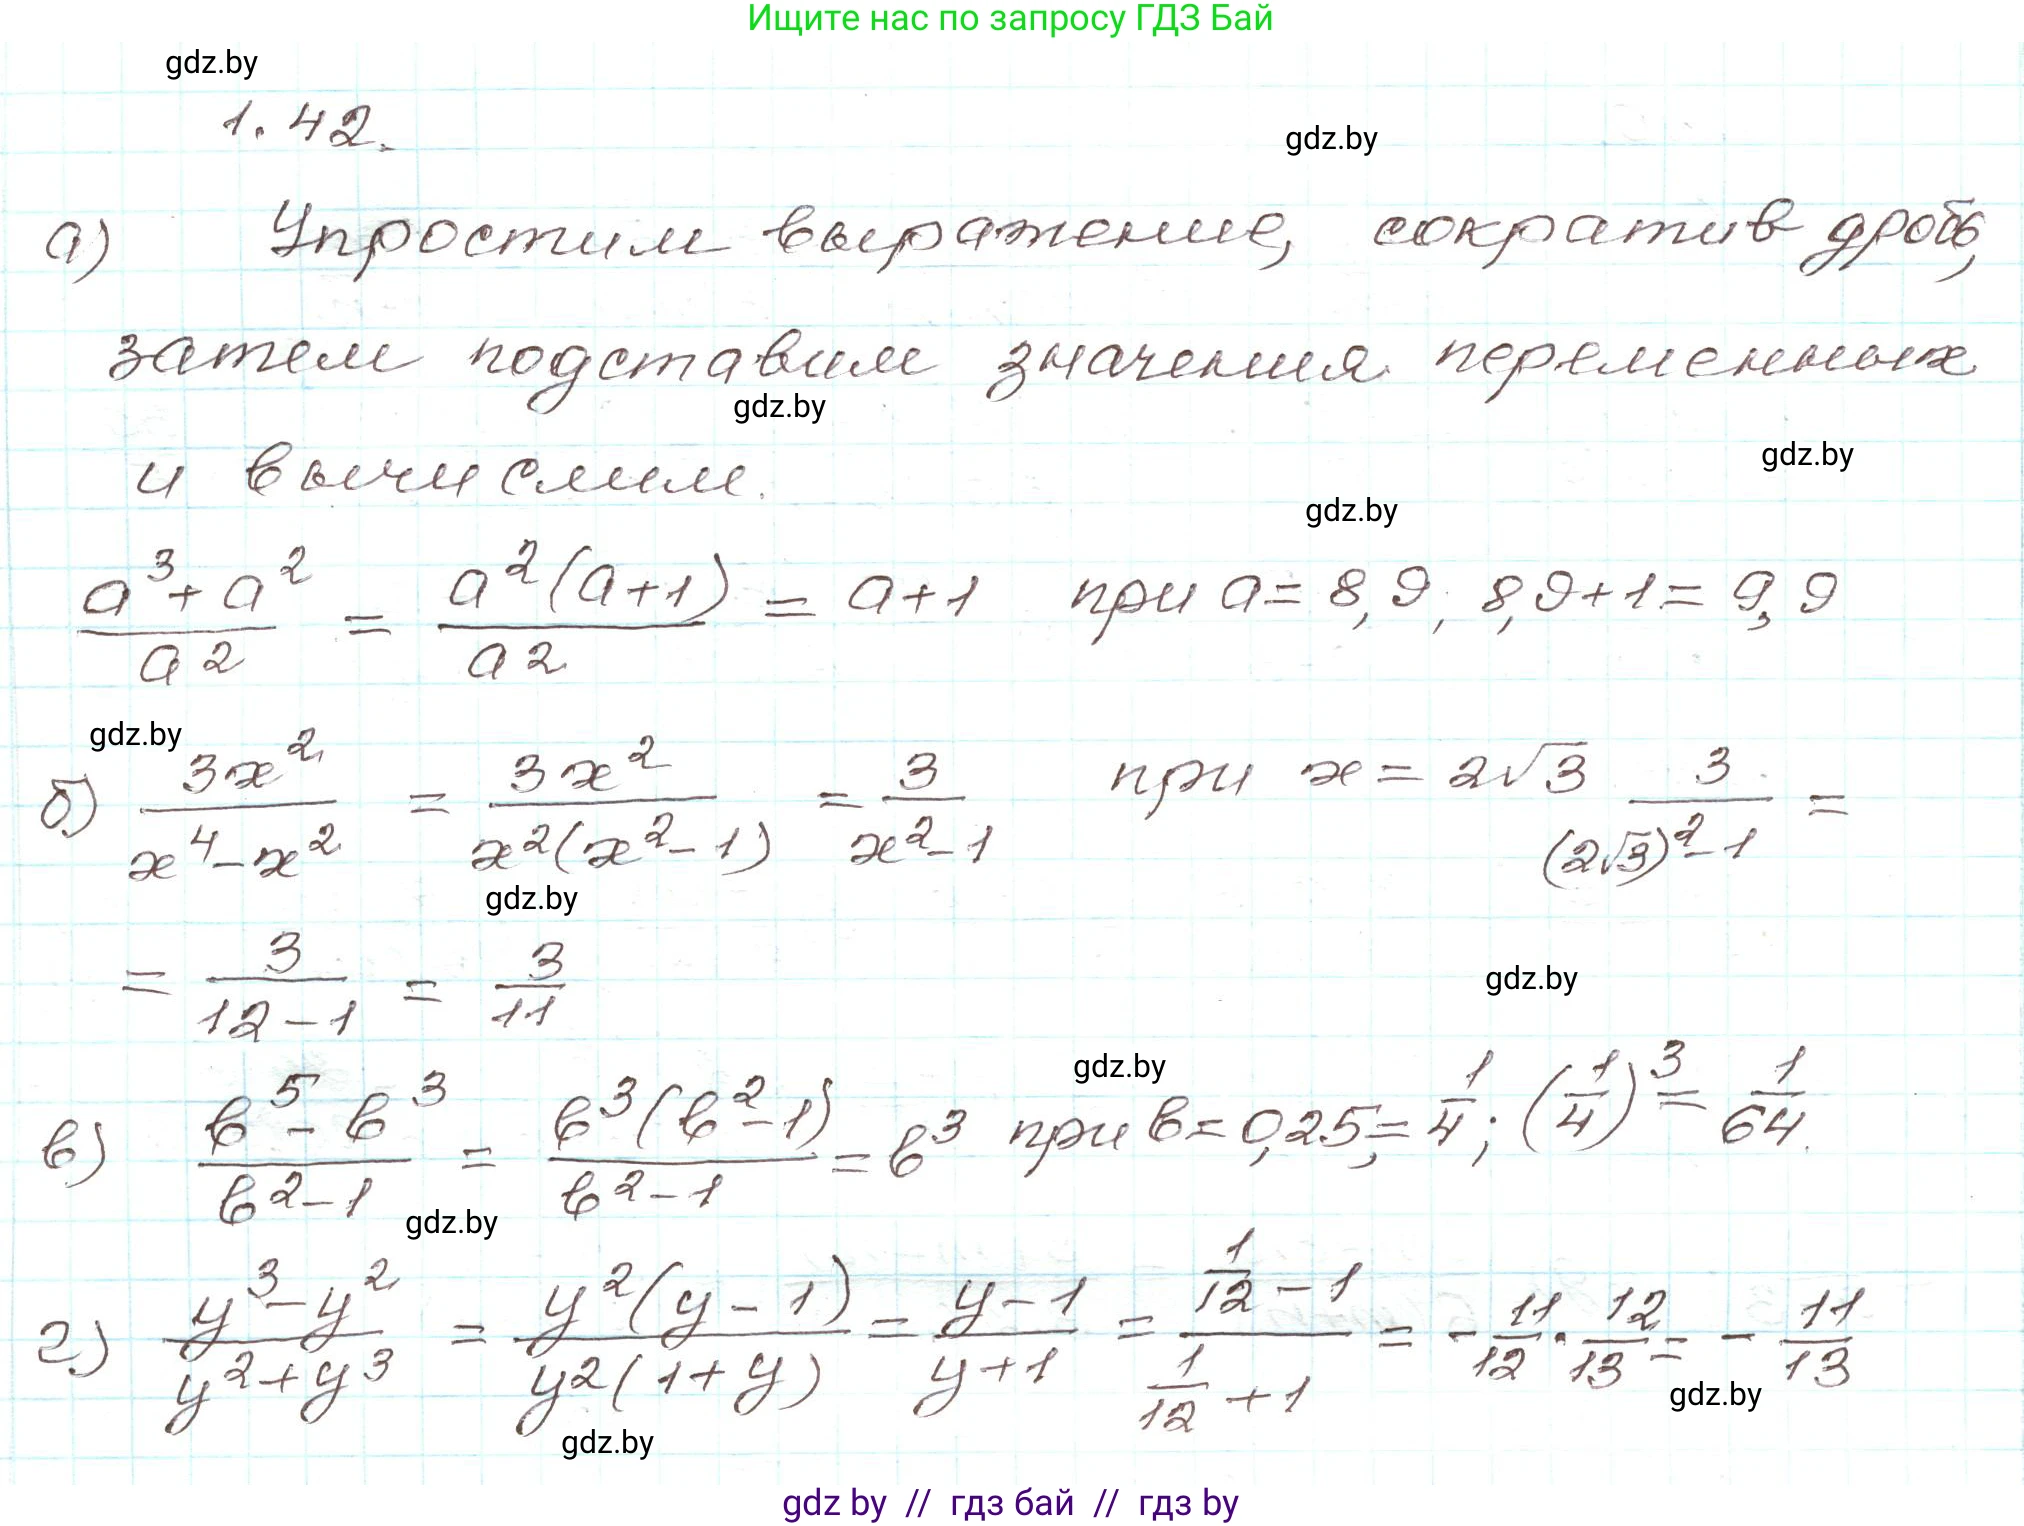 Ищите нас по запросу ГДЗ Бай
gdz.by
1.42.
gdz.by
а) Упростим выражение, сократив дробь,
затем подставим значения переменных
gdz.by
и вычислим.
gdz.by
gdz.by
(a³+a²)/a² = a²(a+1)/a² = a+1 при a=8,9; 8,9+1=9,9
gdz.by
б) 3x²/(x⁴-x²) = 3x²/(x²(x²-1)) = 3/(x²-1) при x=2√3 3/((2√3)²-1) =
gdz.by
= 3/(12-1) = 3/11
gdz.by
gdz.by
в) (b⁵-b³)/(b²-1) = b³(b²-1)/(b²-1) = b³ при b=0,25;=1/4; (1/4)³=1/64.
gdz.by
г) (y³-y²)/(y²+y³) = y²(y-1)/(y²(1+y)) = (y-1)/(y+1) = (1/12-1)/(1/12+1) = -11/12·12/13= -11/13
gdz.by
gdz.by
gdz by // гдз бай // гдз by